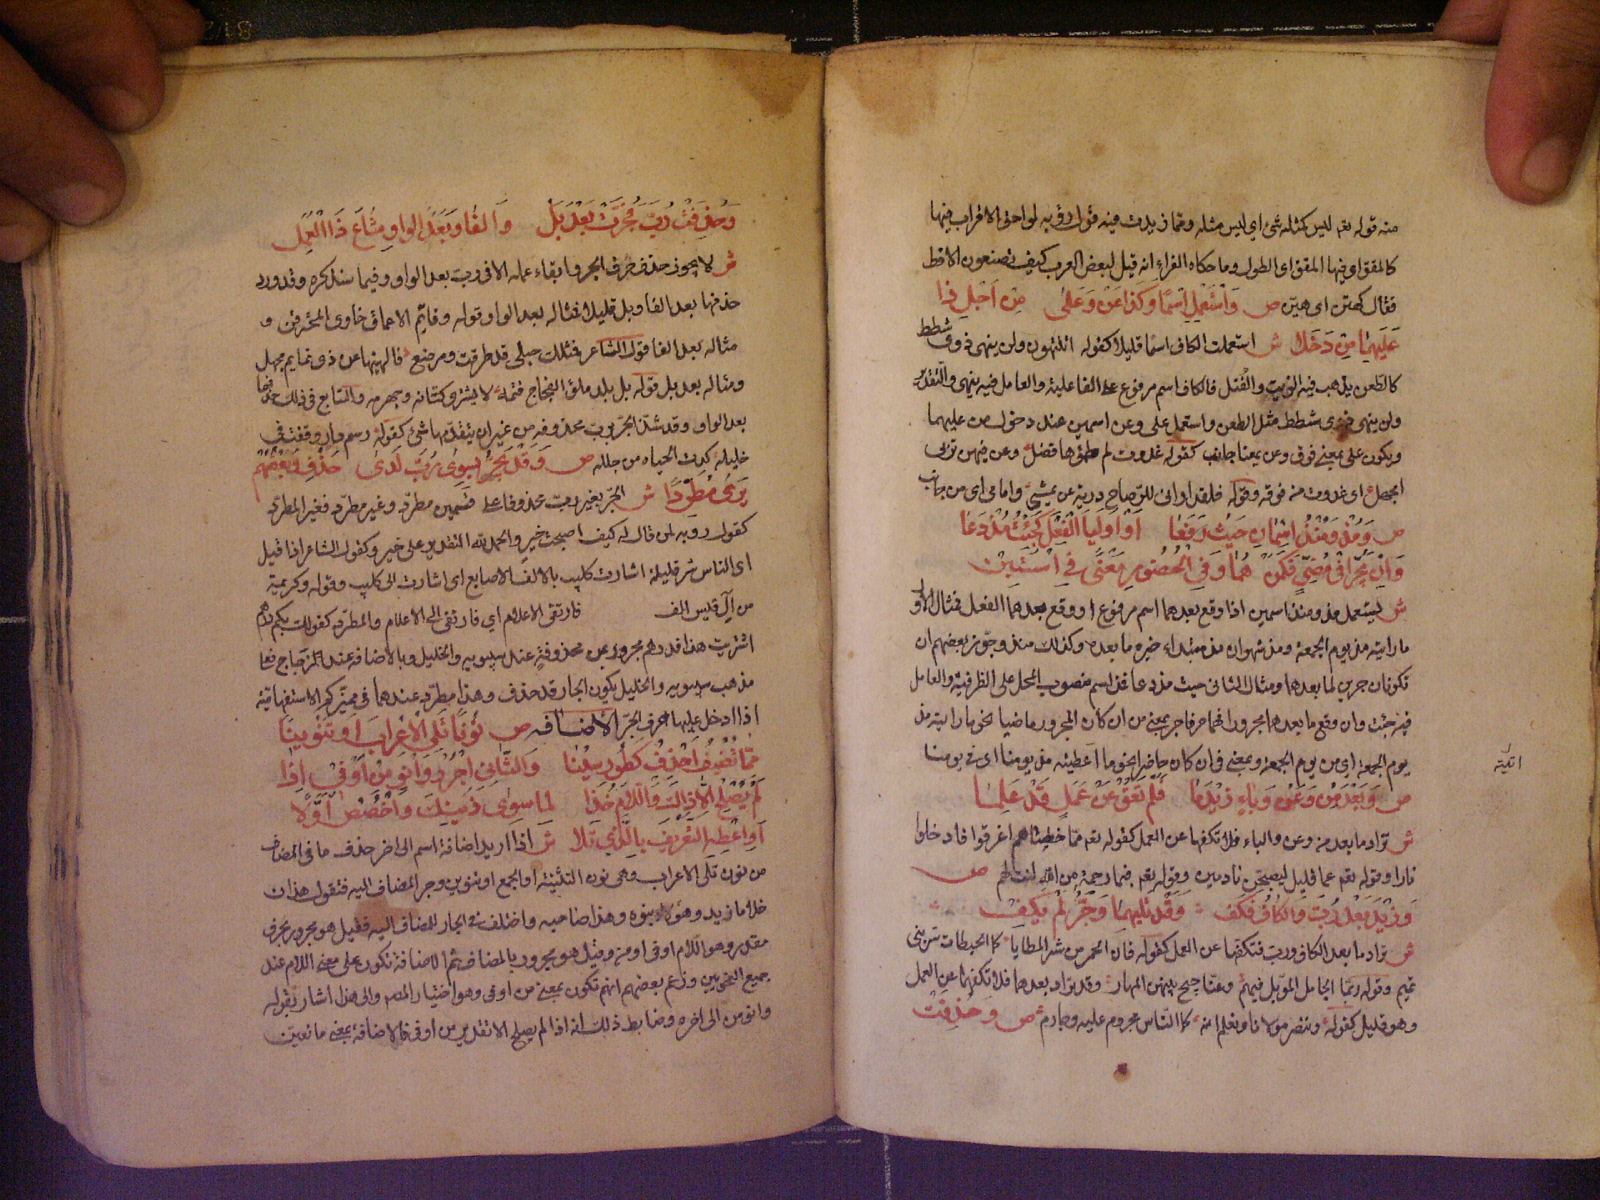 منه قوله تعم ليس كمثله شئ اي ليس مثله ومما زيدت فيه قول رؤبه لواحق الاقراب فيها
كالمقق اي فيها المقق اي الطول وما حكاه الفراء انه قيل لبعض العرب كيف تصنعون الاقط
فقال كهين اى هين ص وَاسْتُعْمِلَ اسْمًا وَكَذَا عَنْ وَعَلىٰ مِنْ اَجْلِ ذَا
عَلَيهِمَا مِنْ دَخَلا ش استعملت الكاف اسما قليلا كقوله اتنتهون ولن ينهى ذوى شطط
كالطعن يذهب فيه الزيت والفتل فالكاف اسم مرفوع على الفاعلية والعامل فيه ينهى والتقدير
ولن ينهى ذوى شطط مثل الطعن واستعمل على وعن اسمين عند دخول من عليهما
ويكون على بمعنى فوق وعن بمعنا جانب كقوله غدوت لم
اى غدوت من فوقه وقوله فلقد اراني للرماح دريئة عن يمينى وامامى اى من جانب
ص وَمُذْ وَمُنْذُ اسْمَانِ حَيْثُ رَفَعَا اَوْ اُولِيَا الْفِعْلَ كَجِئْتُ مُذْ دَعَا
وَاِنْ يَجُرَّا فِي مُضِيٍّ فَكَمِنْ هُمَا وَفِى الْحُضُورِ مَعْنَى فِى اسْتَبِنْ
ش يستعمل مذ ومنذ اسمين اذا وقع بعدهما اسم مرفوع او وقع بعدهما الفعل فمثال الاول
ما رايته مذ يوم الجمعة ومذ شهران فمذ مبتداء خبره ما بعده وكذلك منذ وجوّز بعضهم ان
تكونان خبرين لما بعدهما ومثال الثاني جئت مذ دعا فمذ اسم منصوب المحل على الظرفية والعامل
فيه جئت وان وقع ما بعدهما مجرورا فهما حرفا جر بمعنى من ان كان المجرور ماضيا نحو ما رايته مذ
يوم الجمعة اي من يوم الجمعة وبمعنى في ان كان حاضرا نحو ما اعطيته مذ يومنا اى في يومنا
ص وَبَعْدَ مِنْ وَعَنْ وَبَاءٍ زِيْدَ مَا فَلَمْ تَعُقْ عَنْ عَمَلٍ قَدْ عُلِمَا
ش تزاد ما بعد من وعن والباء فلا تكفها عن العمل كقوله تعم ممّا خطيئاتهم اغرقوا فادخلوا
نارا وقوله تعم عما قليل ليصبحن نادمين وقوله تعم فبما رحمة من الله لنت لهم ص
وَزِيْدَ بَعْدَ رُبَّ وَالْكَافِ فَكَفّ وَقَدْ تَلِيْهِمَا وَجَرٌّ لَمْ يُكَفّ
ش تزاد ما بعد الكاف ورب فتكفهما عن العمل كقوله فان الحمر من شر المطايا كما الحبطات شر بني
تميم وقوله ربما الجامل الموبل فيهم وعناجيج بينهن المهار وقد تزاد بعدهما فلا تكفهما عن العمل
وهو قليل كقوله وننصر مولانا ونعلم انه كما الناس مجروم عليه وجارم ص وَحُذِفَتْ
وَحُذِفَتْ رُبَّ فَجَرَّتْ بَعْدَ بَلْ وَالْفَا وَبَعْدَ الواوِ شَاعَ ذَا الْعَمَل
ش لا يجوز حذف حرف الجر وابقاء عمله الا في رب بعد الواو وفيما سنذكره وقد ورد
حذفها بعد الفا وبل قليلا فمثاله بعد الواو قوله وقاتم الاعماق خاوى المخترقن و
مثاله بعد الفا قول الشاعر فمثلك حبلى قد طرقت ومرضع فالهيتها عن ذى تمايم محول
ومثاله بعد بل قوله بل بلد ملؤ الفجاج قتمه لا يشترى كتانه وجهرمه والشايع في ذلك حذفها
بعد الواو وقد شذ الجر برب محذوفة من غير ان يتقدمها شئ كقوله رسم دار وقفت في
طلله كدت الحياه من جلله ص وَقَدْ يُجَرُّ بِسِوىٰ رُبَّ لَدىٰ حَذْفٍ وَبَعْضُهُمْ
يُرىٰ مُطَّرِدًا ش الجر بغير رب محذوفا على قسمين مطرد وغير مطرد فغير المطرد
كقول روبه لمن قال له كيف اصبحت خير والحمد لله التقدير على خير وكقول الشاعر اذا قيل
اى الناس شر قليلة اشارت كليب بالاكف الاصابع اى اشارت الى كليب وقوله وكريمة
من آل قيس الف فارتقى الاعلام اي فارتقى الى الاعلام والمطرد كقولك بكم درهم
اشتريت هذا فدرهم مجرور بمن محذوفة عند سيبويه والخليل وبالاضافة عند الزجاج فعلى
مذهب سيبويه والخليل يكون الجار قد حذف وهذا مطرد عندهما في مميز كم الاستفهامية
اذا ادخل عليها حرف الجر الاضافه ص نُونًا تَلِى الْاِعْرَابَ اَوْ تَنْوِينًا
مِمَّا تُضِيفُ احْذِفْ كَطُورِ سِيْنَا وَالثَّانِىَ اجْرُرْ وَانْوِ مِنْ اَوْ فِى اِذَا
لَمْ يَصْلُحْ اِلَّا ذَاكَ وَاللَّامَ خُذَا لِمَا سِوىٰ ذَيْنِكَ وَاخْصُصْ اَوَّلًا
اَوْ اَعْطِهِ التَّعْرِيفَ بِالَّذِي تَلَا ش اذا اريد اضافة اسم الى اخر حذف ما في المضاف
من نون تلى الاعراب وهى نون التثنية او الجمع او تنوين وجر المضاف اليه فتقول هذان
غلاما زيد وهؤلاء بنوه وهذا صاحبه واختلف في الجار للمضاف اليه فقيل هو مجرور بحرف
مقدر وهو اللام او في او من وقيل هو مجرور بالمضاف ثم الاضافة تكون على معنى اللام عند
جميع النحويين وزعم بعضهم انهم تكون بمعنى من او في وهو اختيار المص والى هذا اشار بقوله
وانو من الى اخره وضابط ذلك انه اذا لم يصلح الا تقدير من او في فالاضافة بمعنى ما تعين